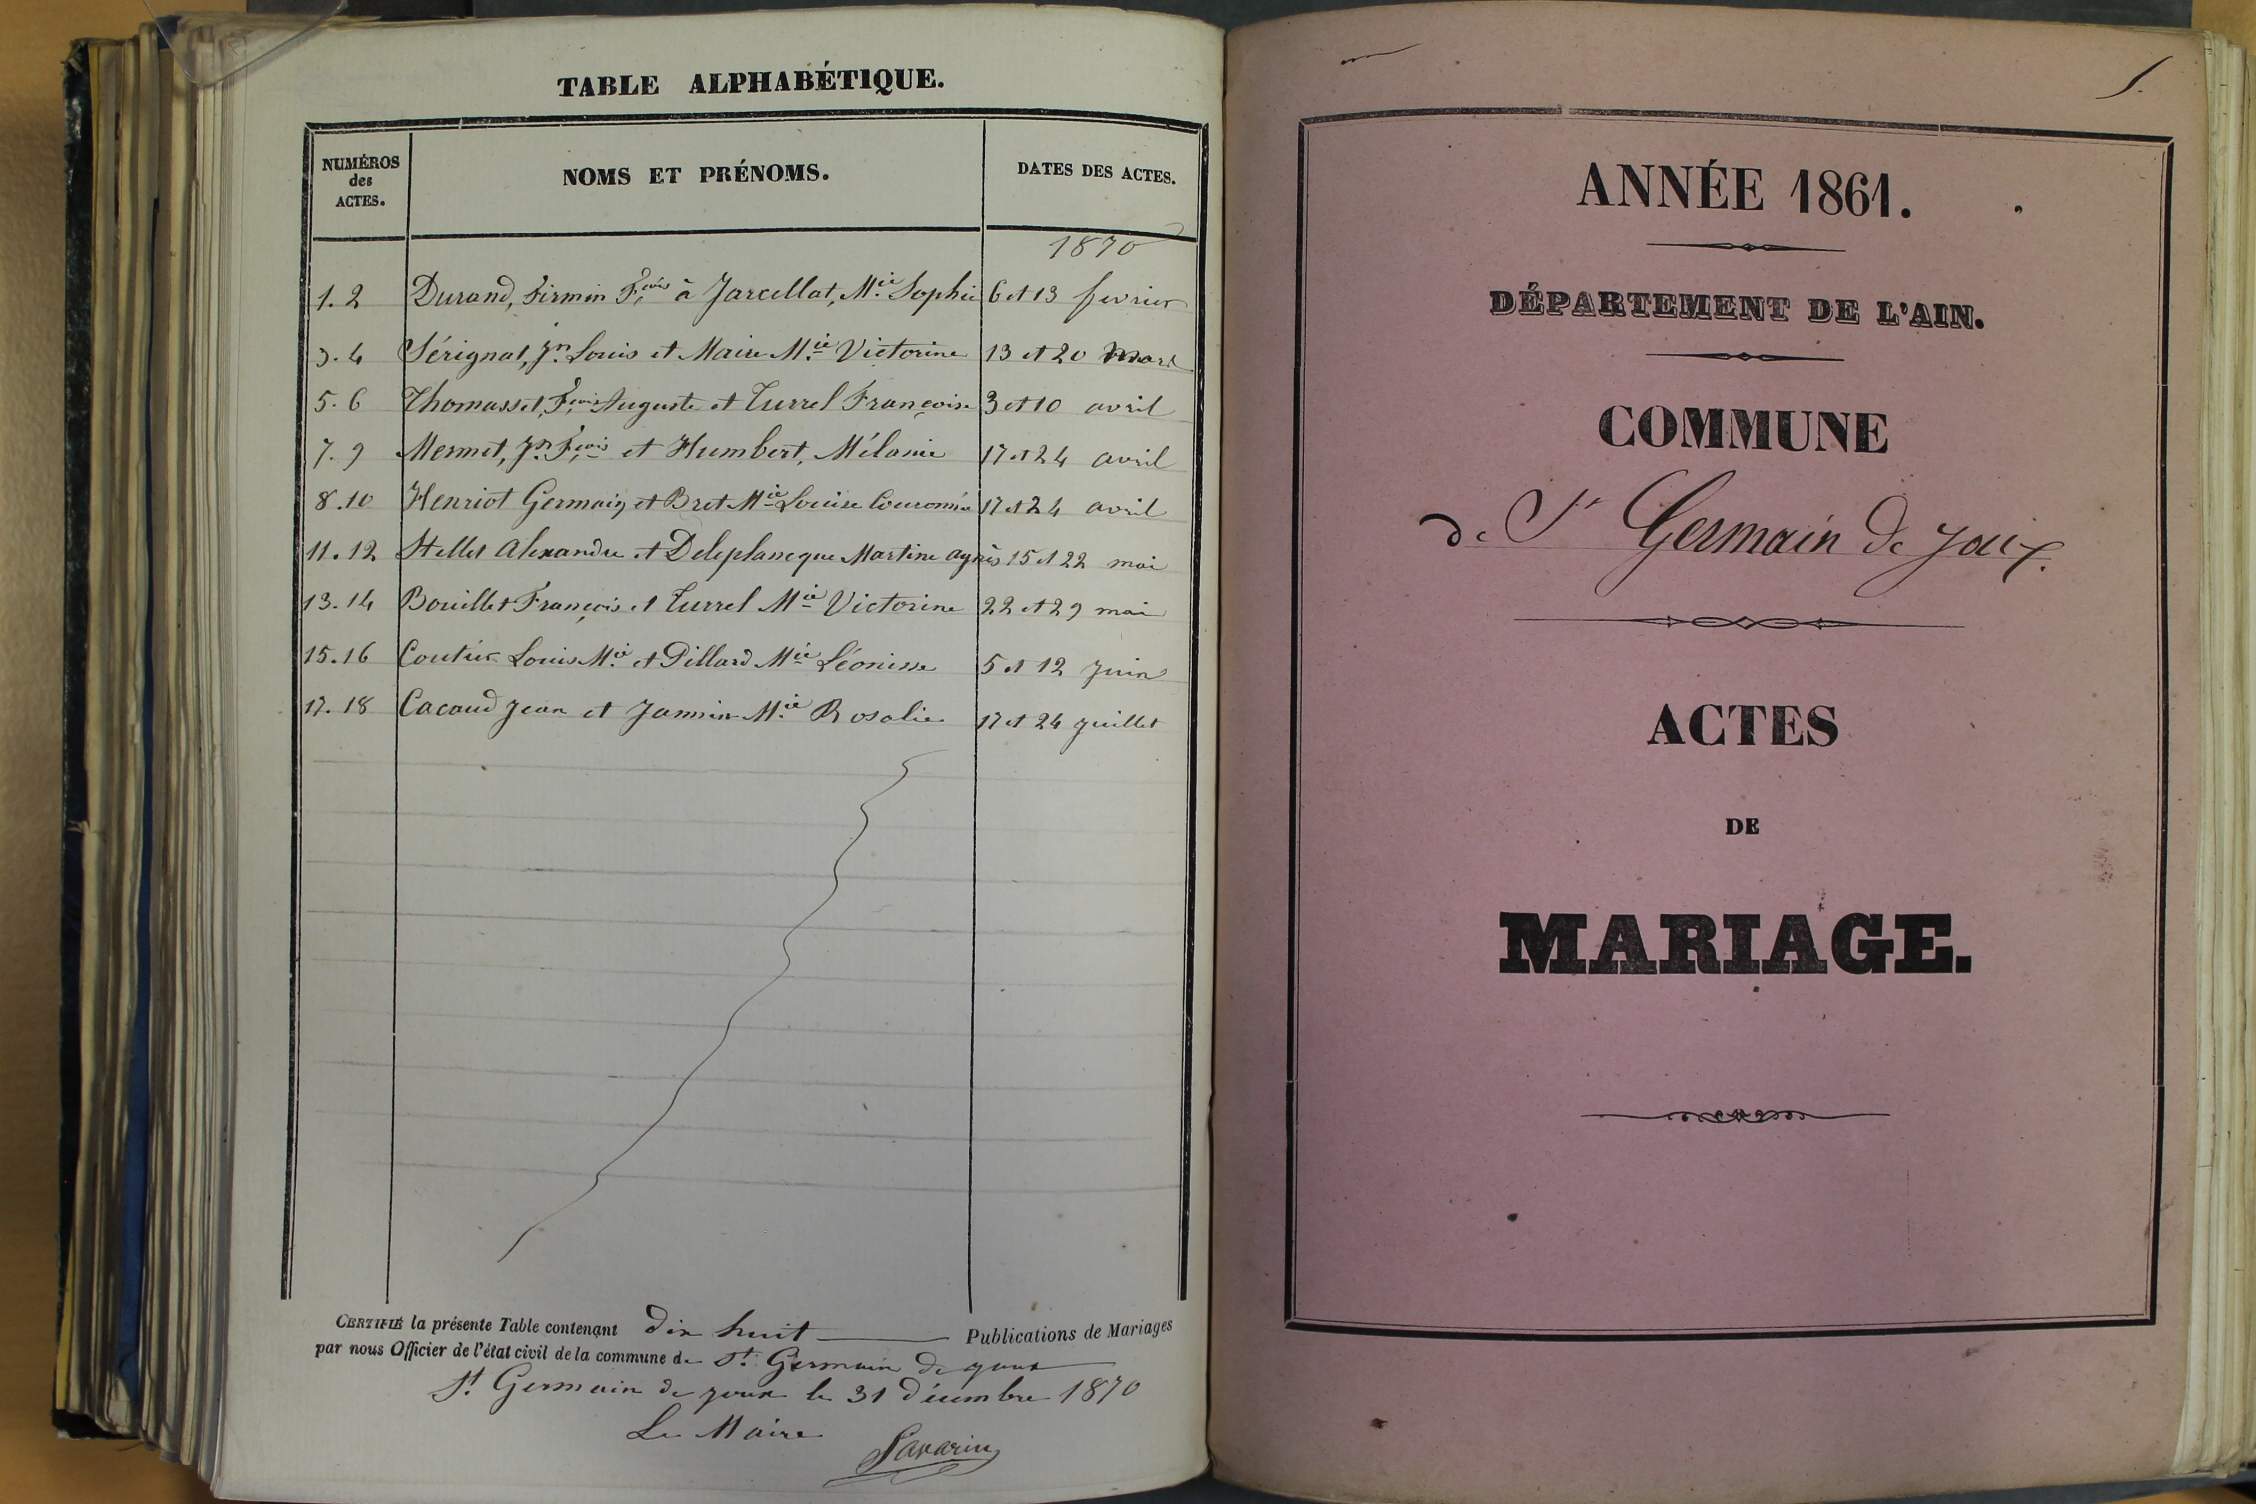 TABLE ALPHABÉTIQUE.
NUMÉROS des ACTES. NOMS ET PRÉNOMS. DATES DES ACTES.
1870
1.2 Durand, Firmin F.çois à Jarcellat, M.ie Sophie 6 et 13 fevrier
3.4 Sérignat, J.n Louis et Maire M.ie Victorine 13 et 20 mars
5.6 Thomasset, F.çois Auguste et Turrel Françoise 3 et 10 avril
7.9 Mermet, J.n F.çois et Humbert, Mélanie 17 et 24 avril
8.10 Henriot Germain et Bret M.ie Louise Couronnée 17 et 24 avril
11.12 Stellet Alexandre et Deleplancque Martine Agnès 15 et 22 mai
13.14 Bouillet François et Turrel M.ie Victorine 22 et 29 mai
15.16 Coutier Louis M.ie et Pillard M.ie Léonisse 5 et 12 juin
17.18 Cacaud Jean et Jannin M.ie Rosalie 17 et 24 juillet
CERTIFIÉ la présente Table contenant dix huit Publications de Mariages
par nous Officier de l'état civil de la commune de St. Germain de joux
St. Germain de joux le 31 Décembre 1870
Le Maire
Savarin
1.
ANNÉE 1861.
DÉPARTEMENT DE L'AIN.
COMMUNE
de St Germain de joux.
ACTES
DE
MARIAGE.